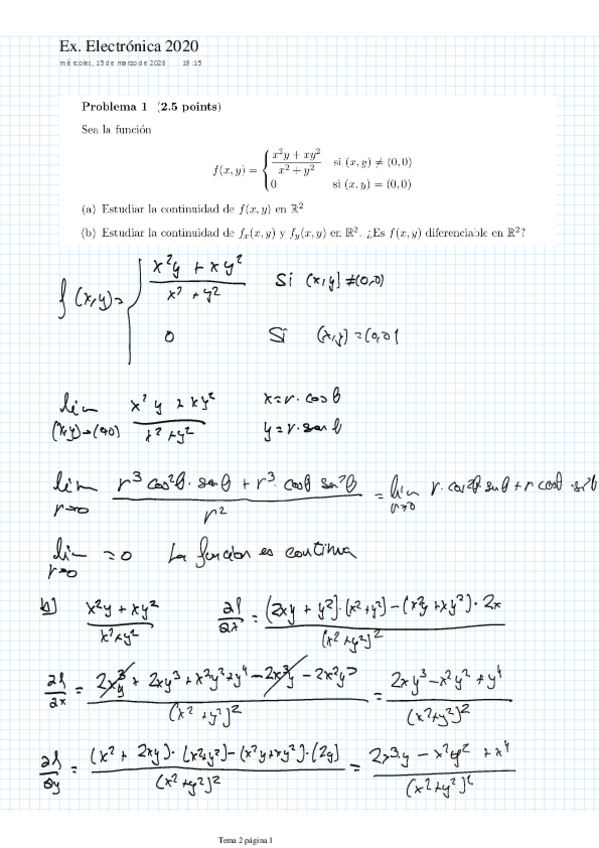 Ex. Electrónica 2020
miércoles, 15 de marzo de 2023 18:15
Problema 1 (2.5 points)
Sea la función
f(x, y) = { x²y + xy² / x² + y² si (x, y) ≠ (0, 0)
0 si (x, y) = (0, 0)
(a) Estudiar la continuidad de f(x, y) en ℝ²
(b) Estudiar la continuidad de fx(x, y) y fy(x, y) en ℝ². ¿Es f(x, y) diferenciable en ℝ²?
f(x,y)= { x²y + xy² / x² + y² Si (x,y) ≠(0,0)
0 Si (x,y) =(0,0)
lim (x,y)→(0,0) x²y + xy² / x² + y² x=r·cosθ
y=r·senθ
lim r→0 r³cos²θ·senθ + r³·cosθ sen²θ / r² = lim r→0 r·cos²θ senθ + r cosθ·sen²θ
lim r→0 =0 La funcion es continua
b) x²y + xy² / x²+y² ∂f/∂x = (2xy + y²)·(x²+y²) - (x²y + xy²)·2x / (x²+y²)²
∂f/∂x = 2x³y + 2xy³ + x²y² + y⁴ - 2x³y - 2x²y² / (x²+y²)² = 2xy³ - x²y² + y⁴ / (x²+y²)²
∂f/∂y = (x² + 2xy)·(x²+y²) - (x²y+xy²)·(2y) / (x²+y²)² = 2x³·y - x²y² + x⁴ / (x²+y²)²
Tema 2 página 1